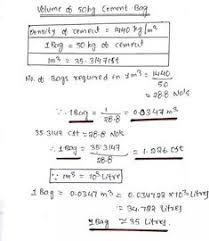 Volume of 50kg Cement Bag
Density of cement = 1440 kg/m³
1 Bag = 50 kg of cement
1m³ = 35.3147 cft
No. of Bags required in 1m³ = 1440/50
= 28.8 No's
∵ 1 Bag = 1/28.8 = 0.0347 m³
35.3147 cft = 28.8 No's
∴ 1 Bag = 35.3147/28.8 = 1.226 cft
1m³ = 10³ litre
1 Bag = 0.0347 m³ = 0.034722 × 10³ litre
= 34.722 litre
1 Bag ≈ 35 Litres